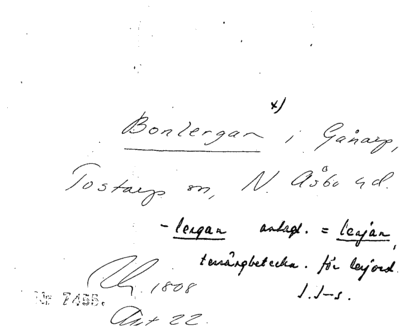 x)
Bonlergan i Gånarp,
Tostarp sn, N. Åsbo hd.
- lergan antagl. = lerjan,
terrängbeteckn. för lerjord.
J. J-s.
1808
Nr 7455.
Akt 22.